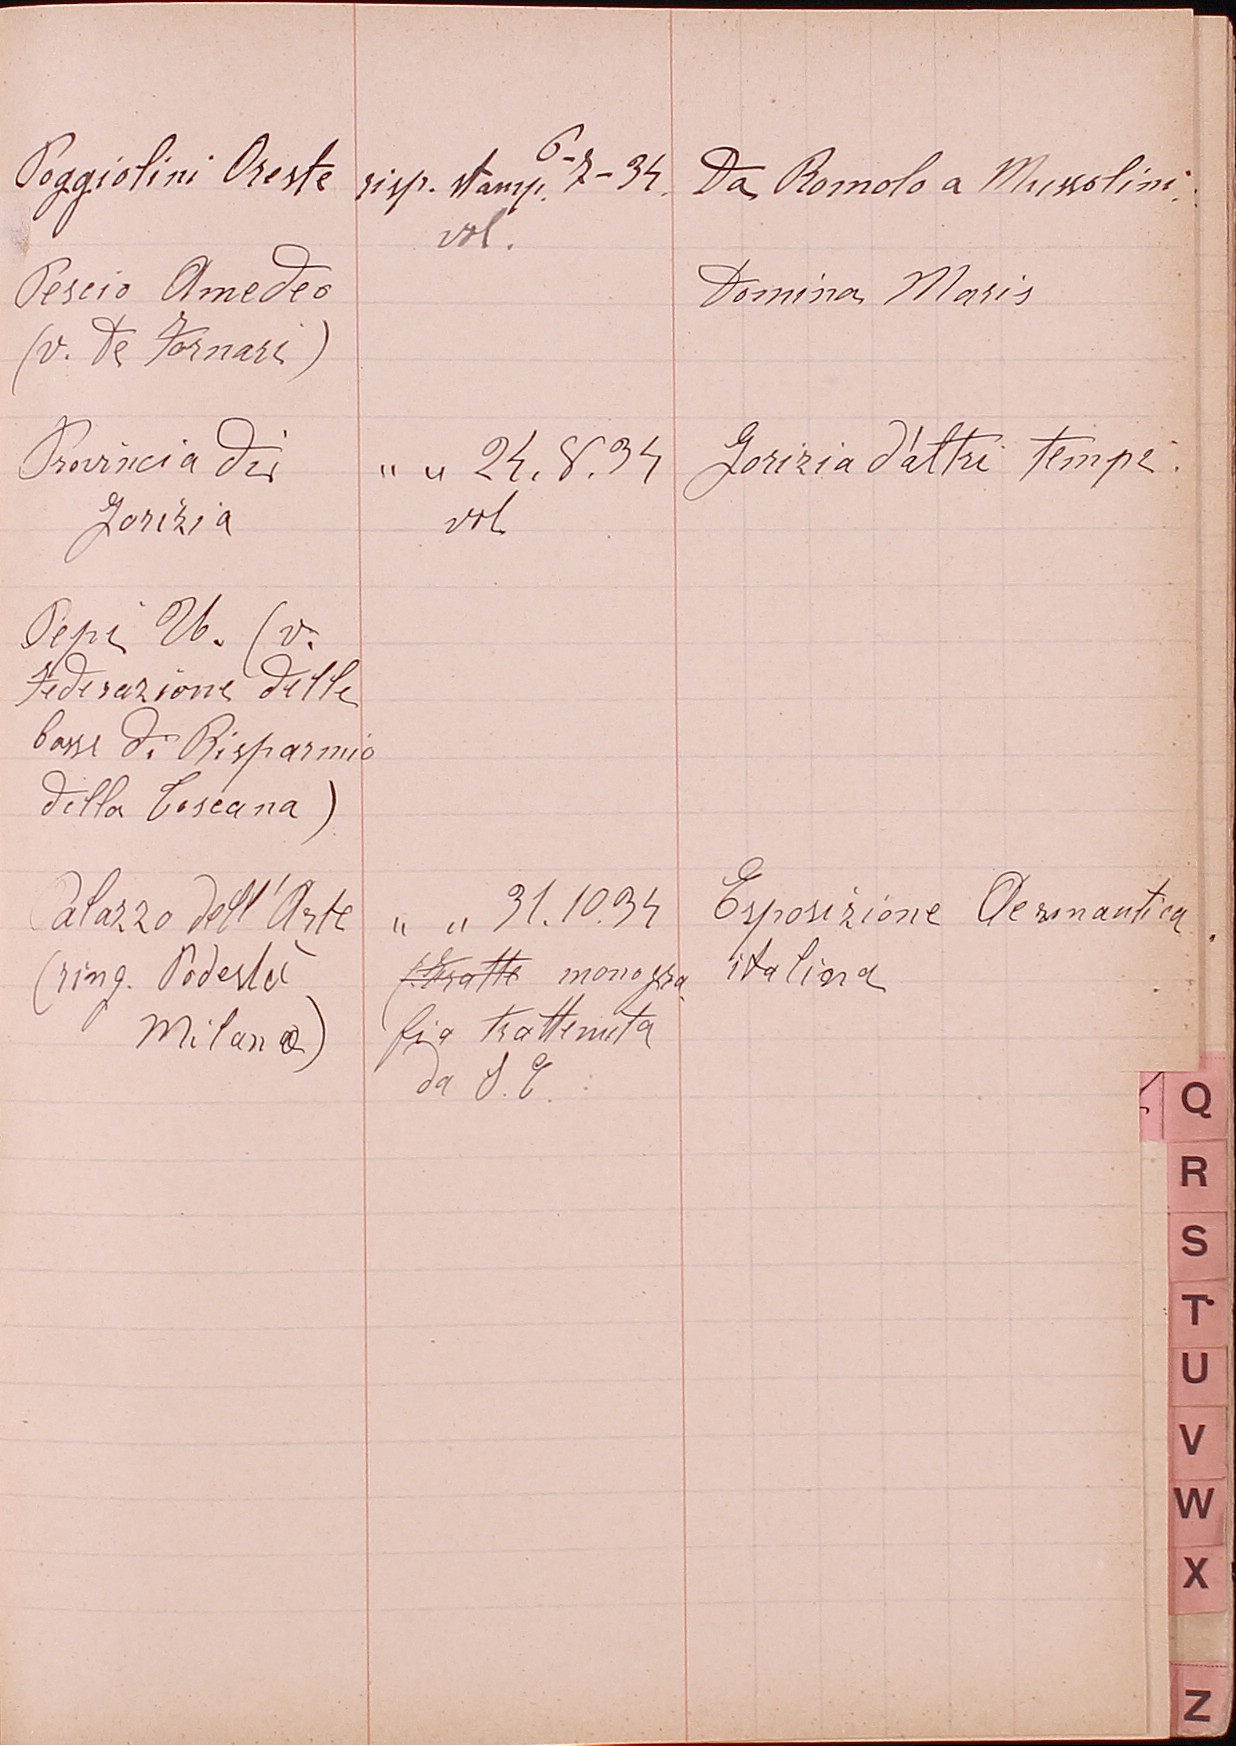 Poggiolini Oreste risp. stamp. 6-7-34. Da Romolo a Mussolini.
vol.
Pescio Amedeo Domina Maris
(v. De Fornari)
Provincia di „ „ 24.8.34 Gorizia d'altri tempi.
Gorizia vol
Pepi Ub. (v.
Federazione delle
Casse di Risparmio
della Toscana)
Palazzo dell'Arte „ „ 31.10.34 Esposizione Aeronautica
(ring. Podestà monogra italiana
Milano) fia trattenuta
da S.E.
Q
R
S
T
U
V
W
X
Z